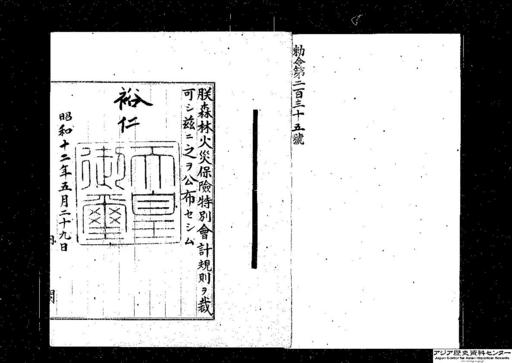 勅令第二百三十五號
朕森林火災保險特別會計規則ヲ裁
可シ茲ニ之ヲ公布セシム
裕仁
天皇
御璽
昭和十二年五月二十九日
アジア歴史資料センター
Japan Center for Asian Historical Records